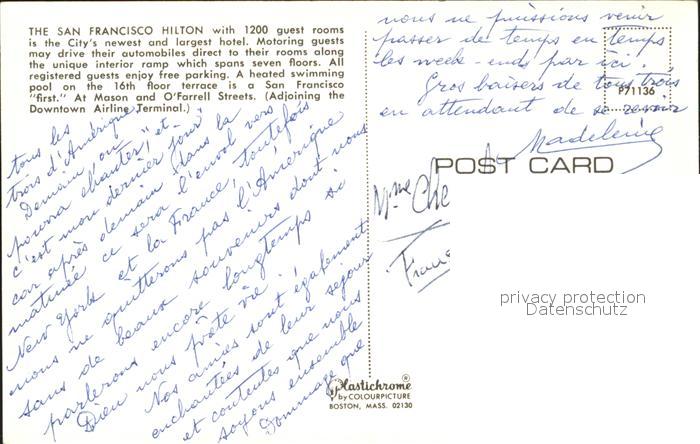 THE SAN FRANCISCO HILTON with 1200 guest rooms
is the City's newest and largest hotel. Motoring guests
may drive their automobiles direct to their rooms along
the unique interior ramp which spans seven floors. All
registered guests enjoy free parking. A heated swimming
pool on the 16th floor terrace is a San Francisco
"first." At Mason and O'Farrell Streets. (Adjoining the
Downtown Airline Terminal.)
tous les
trois d'Amérique
Demain "on
pourra chanter", et
c'est mon dernier jour
car après demain dans la
matinée ce sera l'envol vers
New York et la France, toutefois
nous ne quitterons pas l'Amérique
sans de beaux souvenirs dont nous
parlerons encore longtemps si
Dieu nous prête vie.
Nos amies sont également
enchantées de leur séjour
et contentes que nous
soyons ensemble
Dommage que
nous ne puissions venir
passer de temps en temps
les week-ends par ici.
Gros baisers de tous trois
en attendant de se revoir
Madeleine
P71136
POST CARD
Mme Che
Fran
privacy protection
Datenschutz
Plastichrome®
by COLOURPICTURE
BOSTON, MASS. 02130